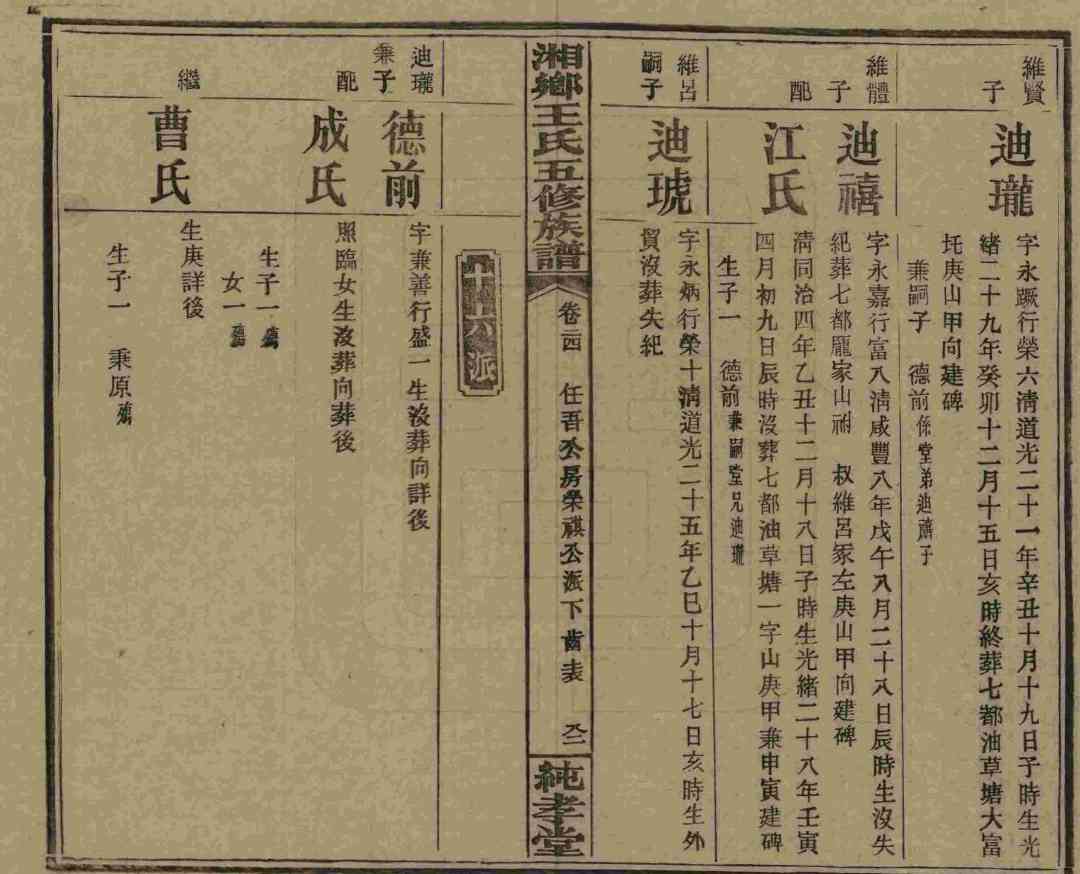 維賢
子
迪瓏
字永蹶行榮六清道光二十一年辛丑十月十九日子時生光
緒二十九年癸卯十二月十五日亥時終葬七都油草塘大富
坵庚山甲向建碑
兼嗣子 德前係堂弟迪禧子
維體
子
迪禧
字永嘉行富八清咸豐八年戊午八月二十八日辰時生沒失
紀葬七都龎家山祔 叔維呂冢左庚山甲向建碑
配
江氏
清同治四年乙丑十二月十八日子時生光緒二十八年壬寅
四月初九日辰時沒葬七都油草塘一字山庚甲兼申寅建碑
生子一 德前兼嗣堂兄迪瓏
維呂
嗣子
迪琥
字永炳行榮十清道光二十五年乙巳十月十七日亥時生外
貿沒葬失紀
湘鄉王氏五修族譜
卷二四 任吾公房榮祺公派下齒表 八二
純孝堂
廿六派
迪瓏
兼子
德前
字兼善行盛一生沒葬向詳後
配
成氏
照臨女生沒葬向葬後
生子一殤
女一殤
繼
曹氏
生庚詳後
生子一 秉原殤